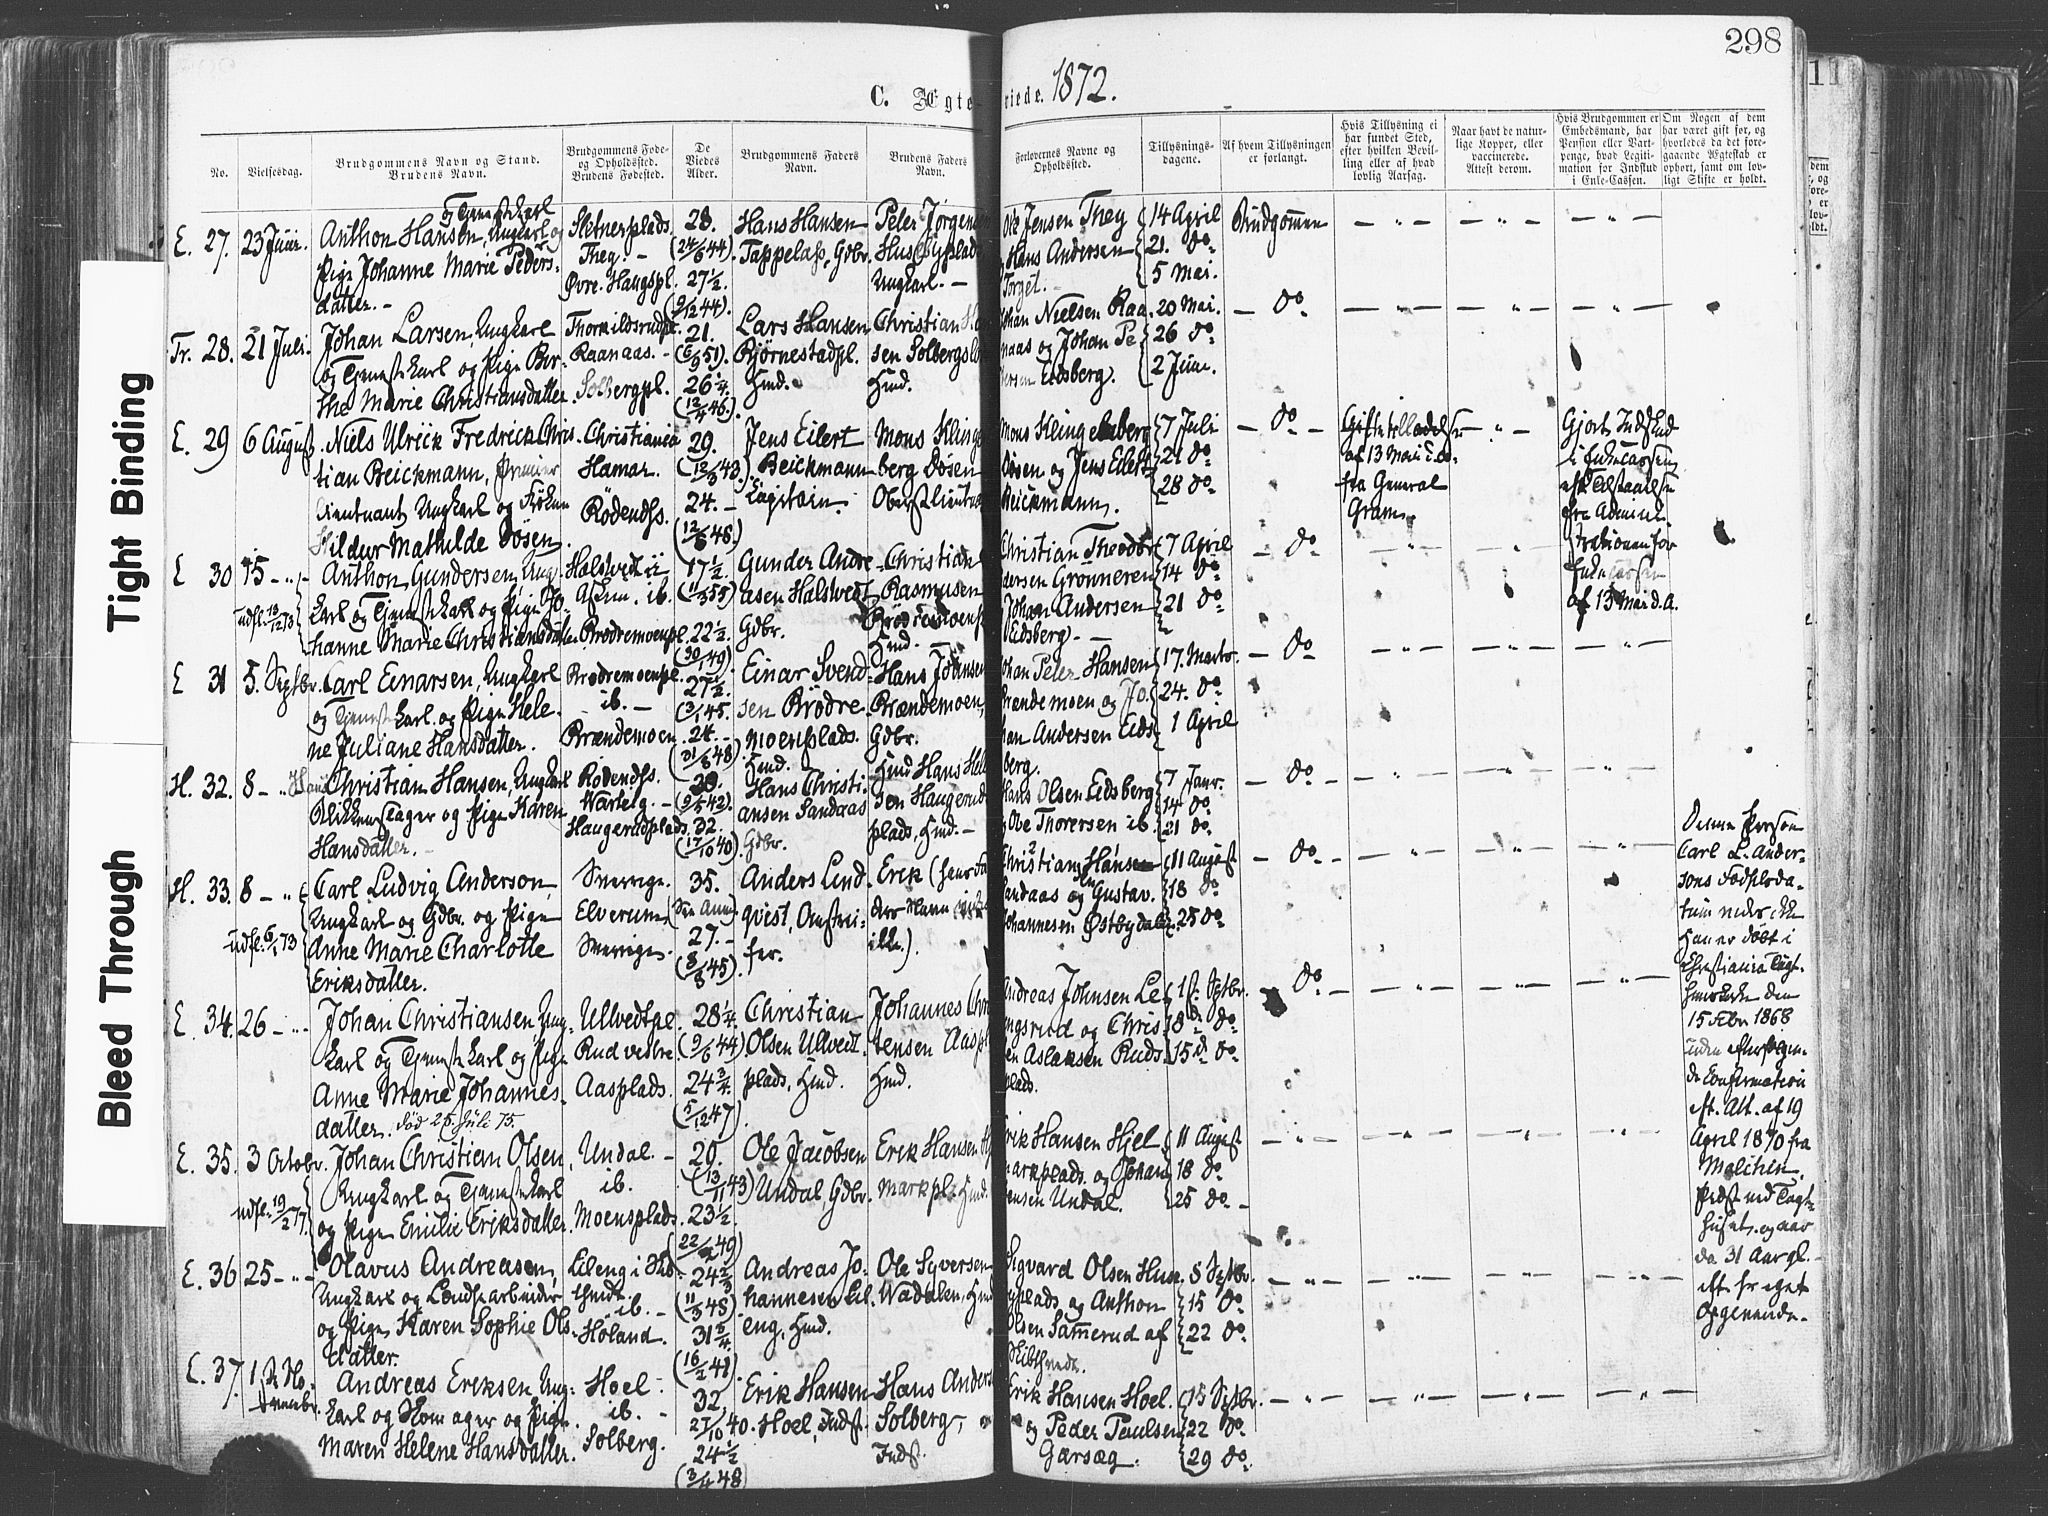 298
C. Ægte-
viede. 1872.
No.
Vielsesdag.
Brudgommens Navn og Stand.
Brudens Navn.
Brudgommens Føde-
og Opholdssted.
Brudens Fødested.
De
Viedes
Alder.
Brudgommens Faders
Navn.
Brudens Faders
Navn.
Forlovernes Navne og
Opholdssted.
Tillysnings-
dagene.
Af hvem Tillysningen
er forlangt.
Hvis Tillysning ei
har fundet Sted,
efter hvilken Bevil-
ling eller af hvad
lovlig Aarsag.
Naar havt de natur-
lige Kopper, eller
vaccinerede.
Attest derom.
Hvis Brudgommen er
Embedsmand, har
Pension eller Vart-
penge, hvad Legiti-
mation for Indskud
i Enke-Cassen.
Om Nogen af dem
har været gift før, og
hvorledes da det fore-
gaaende Ægteskab er
ophørt, samt om lov-
ligt Skifte er holdt.
Tight Binding
Bleed Through
E. 27. 23 Juni.
Anthon Hansen, Ungkarl og
Tjenestekarl
Pige Johanne Marie Peders-
datter. -
Sletnerplads.
Theg. -
Øvre. Haugspl.
28.
(24/6 44)
27½.
(9/12 44).
Hans Hansen
Tappelass, Gdbr.
Peter Jørgensen
Huseby plads
Ungkarl. -
Ole Jensen Theg
Hans Andersen
Torget. -
14 April
21. do
5 Mai.
Brudgommen
Tr. 28. 21 Juli.
Johan Larsen, Ungkarl
og Tjenestekarl og Pige Ber-
the Marie Christiansdatter.
Thorkildsrudpl.
Raanaas. -
Solbergpl.
21.
(6/9 51).
26¼.
(12/4 46).
Lars Hansen
Bjørnestadpl.
Hmd.
Christian Han
sen Solbergs
Hmd.
Johan Nielsen Raa
naas og Johan Pe
tersen Eidsberg.
20 Mai.
26 do
2 Juni.
do
E. 29 6 August
Niels Ulrick Fredrick Chris-
tian Beickmann, Premier
Lieutnant Ungkarl og Frøken
Hildur Mathilde Døsen.
Christiania
Hamar.
Rødends.
29.
(12/3 43).
24. -
(12/6 48.)
Jens Eilert
Beickmann
Capitain.
Mons Klinge
berg Døsen
Oberstlieutna
Mons Klingenberg
Døsen og Jens Eilert
Beickmann.
7 Juli
21 do
28 do
do
Giftetilladelse
af 13 Mai d. A.
fra General
Gram.
Gjort Indskud
i Enkecassen
eft. Tilstaaelse
fra Admini-
strationen for
Enkecassen
af 13 Mai d. A.
E 30 15 - " -
udfl. 13/12 73
Anthon Gundersen, Ung-
karl og Tjenestekarl og Pige Jo-
hanne Marie Christiansdatter
Halsvedt i
Askim. ib.
Brødremoenpl.
17½.
(1/3 55)
22½.
(30/1 49)
Gunder Andre-
asen Halsvedt
Gdbr.
Christian
Rasmusen
Brødremoensp
Hmd.
Christian Theodor
Pedersen Grønneren
Johan Andersen
Eidsberg -
7 April
14 do
21 do
do
E 31 5. Septbr.
Carl Einarsen, Ungkarl
og Tjenestekarl og Pige Hele-
ne Juliane Hansdatter.
Brødremoenspl.
ib. -
Brændemoen
27½.
(3/1 45.
24. -
(31/8 48)
Einar Svend-
sen Brødre-
moenplads.
Hmd.
Hans Johansen
Brændemoen,
Gdbr.
Johan Peter Hansen
Brændemoen og Jo-
han Andersen Eids
berg.
17. Marts.
24. do
1 April
do
H. 32. 8 - "
Christian Hansen, Ungkarl
Blikkenslager og Pige Karen
Hansdatter. -
Rødends.
Warteig. -
Haugerudplads.
30.
(9/5 42).
32.
(17/10 40).
Hans Christi-
ansen Sandaas
Gdbr.
Hmd Hans Hel
sen Haugerud
plads, Hmd. -
Hans Olsen Eidsberg
Ole Thorersen ib.
7 Janr.
14 do
21 do
do
H. 33. 8 - "
udfl. 6/1 73
Carl Ludvig Anderson,
Ungkarl og Gdbr. og Pige
Anne Marie Charlotte
Eriksdatter.
Sverrige.
Elverum,
Sverrige.
35.
(Sen Anm)
27. -
(8/8 45).
Anders Lind-
qvist,
Erik (hans Fa
ders Navn
ille.)
Christian Hansen
Sandaas og Gustav
Johannesen Østbydalen.
11 August
18 do
25 do
do
Denne Person
Carl L. Ander-
sons Fødselsda-
tum vides ikke
Han er døbt i
Christiania Tugt-
huskirke den
15 Febr 1868
uden efterfølgen-
de Confirmation
eft. Att. af 19
April 1870 fra
Præst ved Tugt-
huset og var
da 31 Aar gl.
eft. hs eget
Opgivende.
E. 34. 26 - "
Johan Christiansen, Ung-
karl og Tjenestekarl og Pige
Anne Marie Johannes-
datter. Død 25. Juli 75.
Ullvedtpl.
Rud vestre.
Aasplads.
28¼.
(9/6 44)
24¾.
(5/12 47)
Christian
Olsen Ullvedt-
plads, Hmd.
Johannes Chr
tensen Aaspl
Hmd.
Andreas Johnsen Le
ngsrud og Chris-
ten Aslaksen Ruds-
plads.
1ste Septbr.
8de do
15de do
do
E. 35. 3 Octobr.
udfl. 19/2 77
Johan Christian Olsen,
Ungkarl og Tjenestekarl
og Pige Emilie Eriksdatter.
Undal. -
ib.
Moensplads.
29.
(13/11 43)
23½.
Ole Jacobsen
Undal, Gdbr.
Erik Hansen Hj
markpl. Hmd.
Erik Hansen Hjel
markplads. og Johan
Jensen Undal.
11 August
18 do
25 do -
E. 36 25 - "
Olavus Andreasen,
Ungkarl og Landarbeider
og Pige Karen Sophie Ols-
datter.
Eileng i Skib-
thvedt.
ib. -
Høland.
24⅔
(11/3 48)
31¾
(16/2 41)
Andreas Jo-
hannesen Eil-
eng, Hmd.
Ole Syversen
Wadalen, Hmd
Sigvard Olsen Huse
byplads og Anthon
Olsen Sammerud af
Skibthvedt.
8 Septbr.
15 do
22 do
E. 37. 1ste No-
vembr.
Andreas Eriksen, Ung-
karl og Skomager og Pige
Maren Helene Hansdatter.
Hoel.
ib. -
Solberg.
32,
27/10 40.
24½
(3/4 48)
Erik Hansen
Hoel, Indst.
Hans Anders
Solberg,
Indst.
Erik Hansen Hoel.
og Peder Paulsen
Garsæg.
15 Septbr.
22 do
29 do